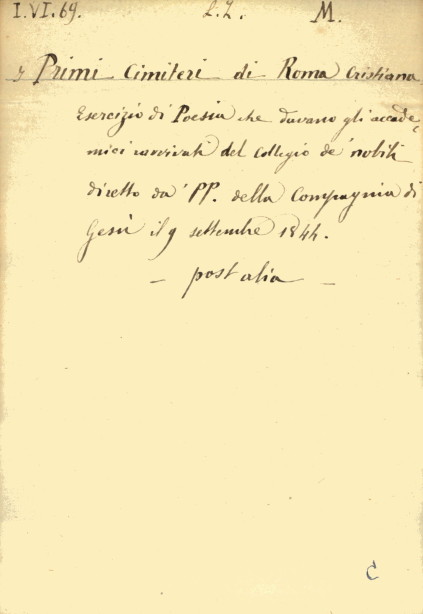 I. VI. 69. L. Z. M.
I Primi Cimiteri di Roma Cristiana
Esercizio di Poesia che davano gli accade-
mici ravvivati del Collegio de' nobili
diretto da' PP. della Compagnia di
Gesù il 9 settembre 1844.
— post alia —
C